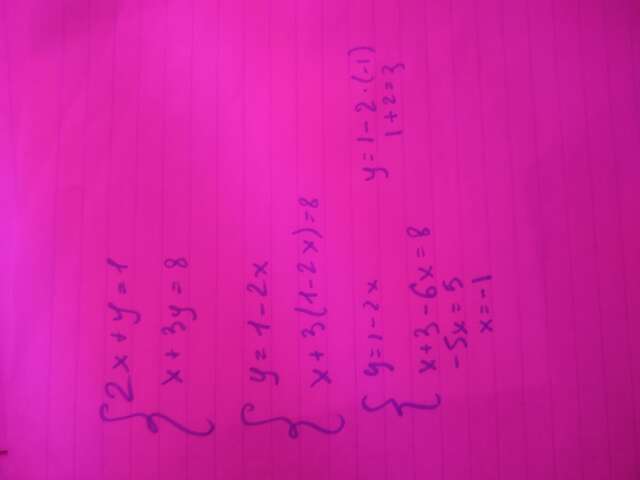 2x+y=1
x+3y=8
y=1-2x
x+3(1-2x)=8
y=1-2x
x+3-6x=8
-5x=5
x=-1
y=1-2·(-1)
1+2=3